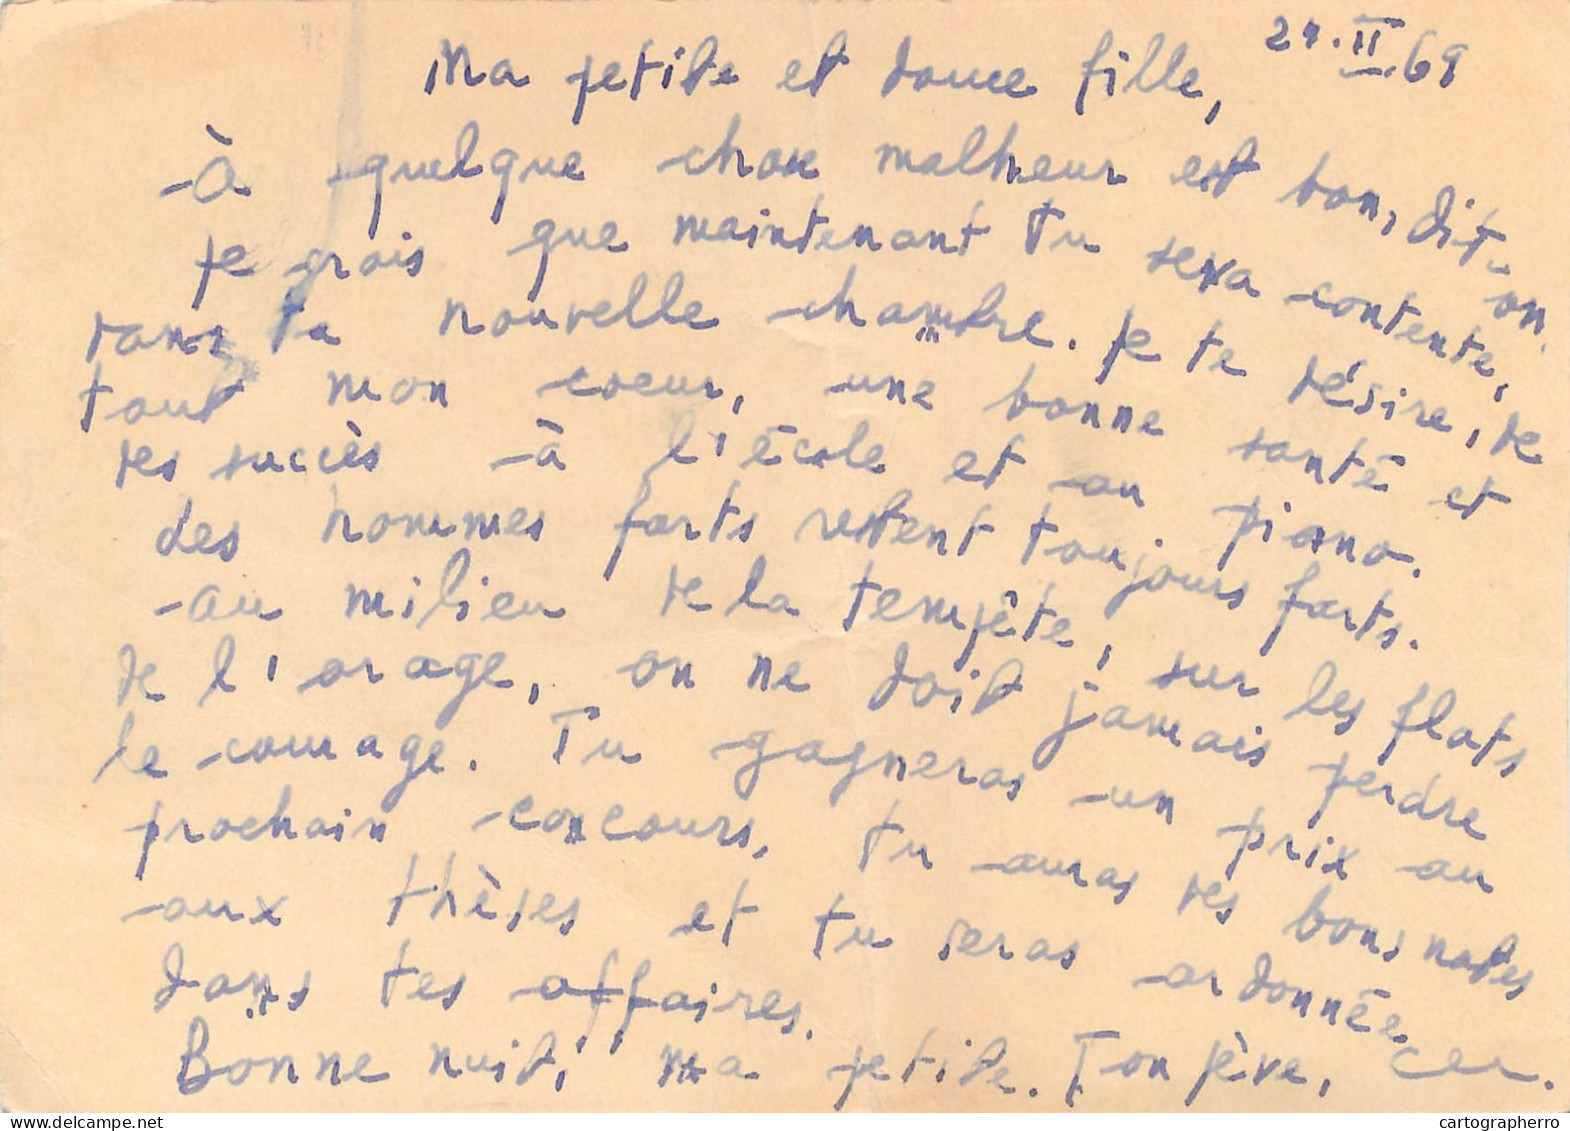 21.II.69
Ma petite et douce fille,
À quelque chose malheur est bon, dit-on.
Je crois que maintenant tu sera contente,
dans ta nouvelle chambre. Je te désire, de
tout mon coeur, une bonne santé et
des succès à l'école et au piano.
des hommes forts restent toujours forts.
au milieu de la tempête, sur les flots
de l'orage, on ne doit jamais perdre
le courage. Tu gagneras un prix au
prochain concours, tu auras des bons notes
aux thèses et tu seras ordonnée
dans tes affaires.
Bonne nuit, ma petite. Ton père,
cartographerro